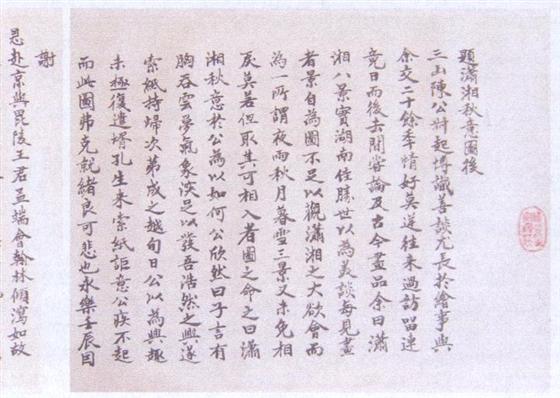 題瀟湘秋意圖後
三山陳公尗起博識善談尤長於繪事與
余交二十餘年情好莫逆往来過訪留連
竟日而後去閒甞論及古今畫品余曰瀟
湘八景實湖南佳勝世以為美談每見畫
者景自為圖不足以觀瀟湘之大欲會而
為一所謂夜雨秋月暮雪三景又未免相
戾莫若但取其可相入者圖之命之曰瀟
湘秋意於公為以如何公欣然曰子言有
胸吞雲夢氣象深足以發吾浩然之興遂
索紙持歸次第成之越旬日公以為興趣
未極復遣壻孔生来索紙詎意公疾不起
而此圖弗克就緒良可悲也永樂壬辰因
謝
恩赴京與毘陵王君孟端會翰林傾瀉如故